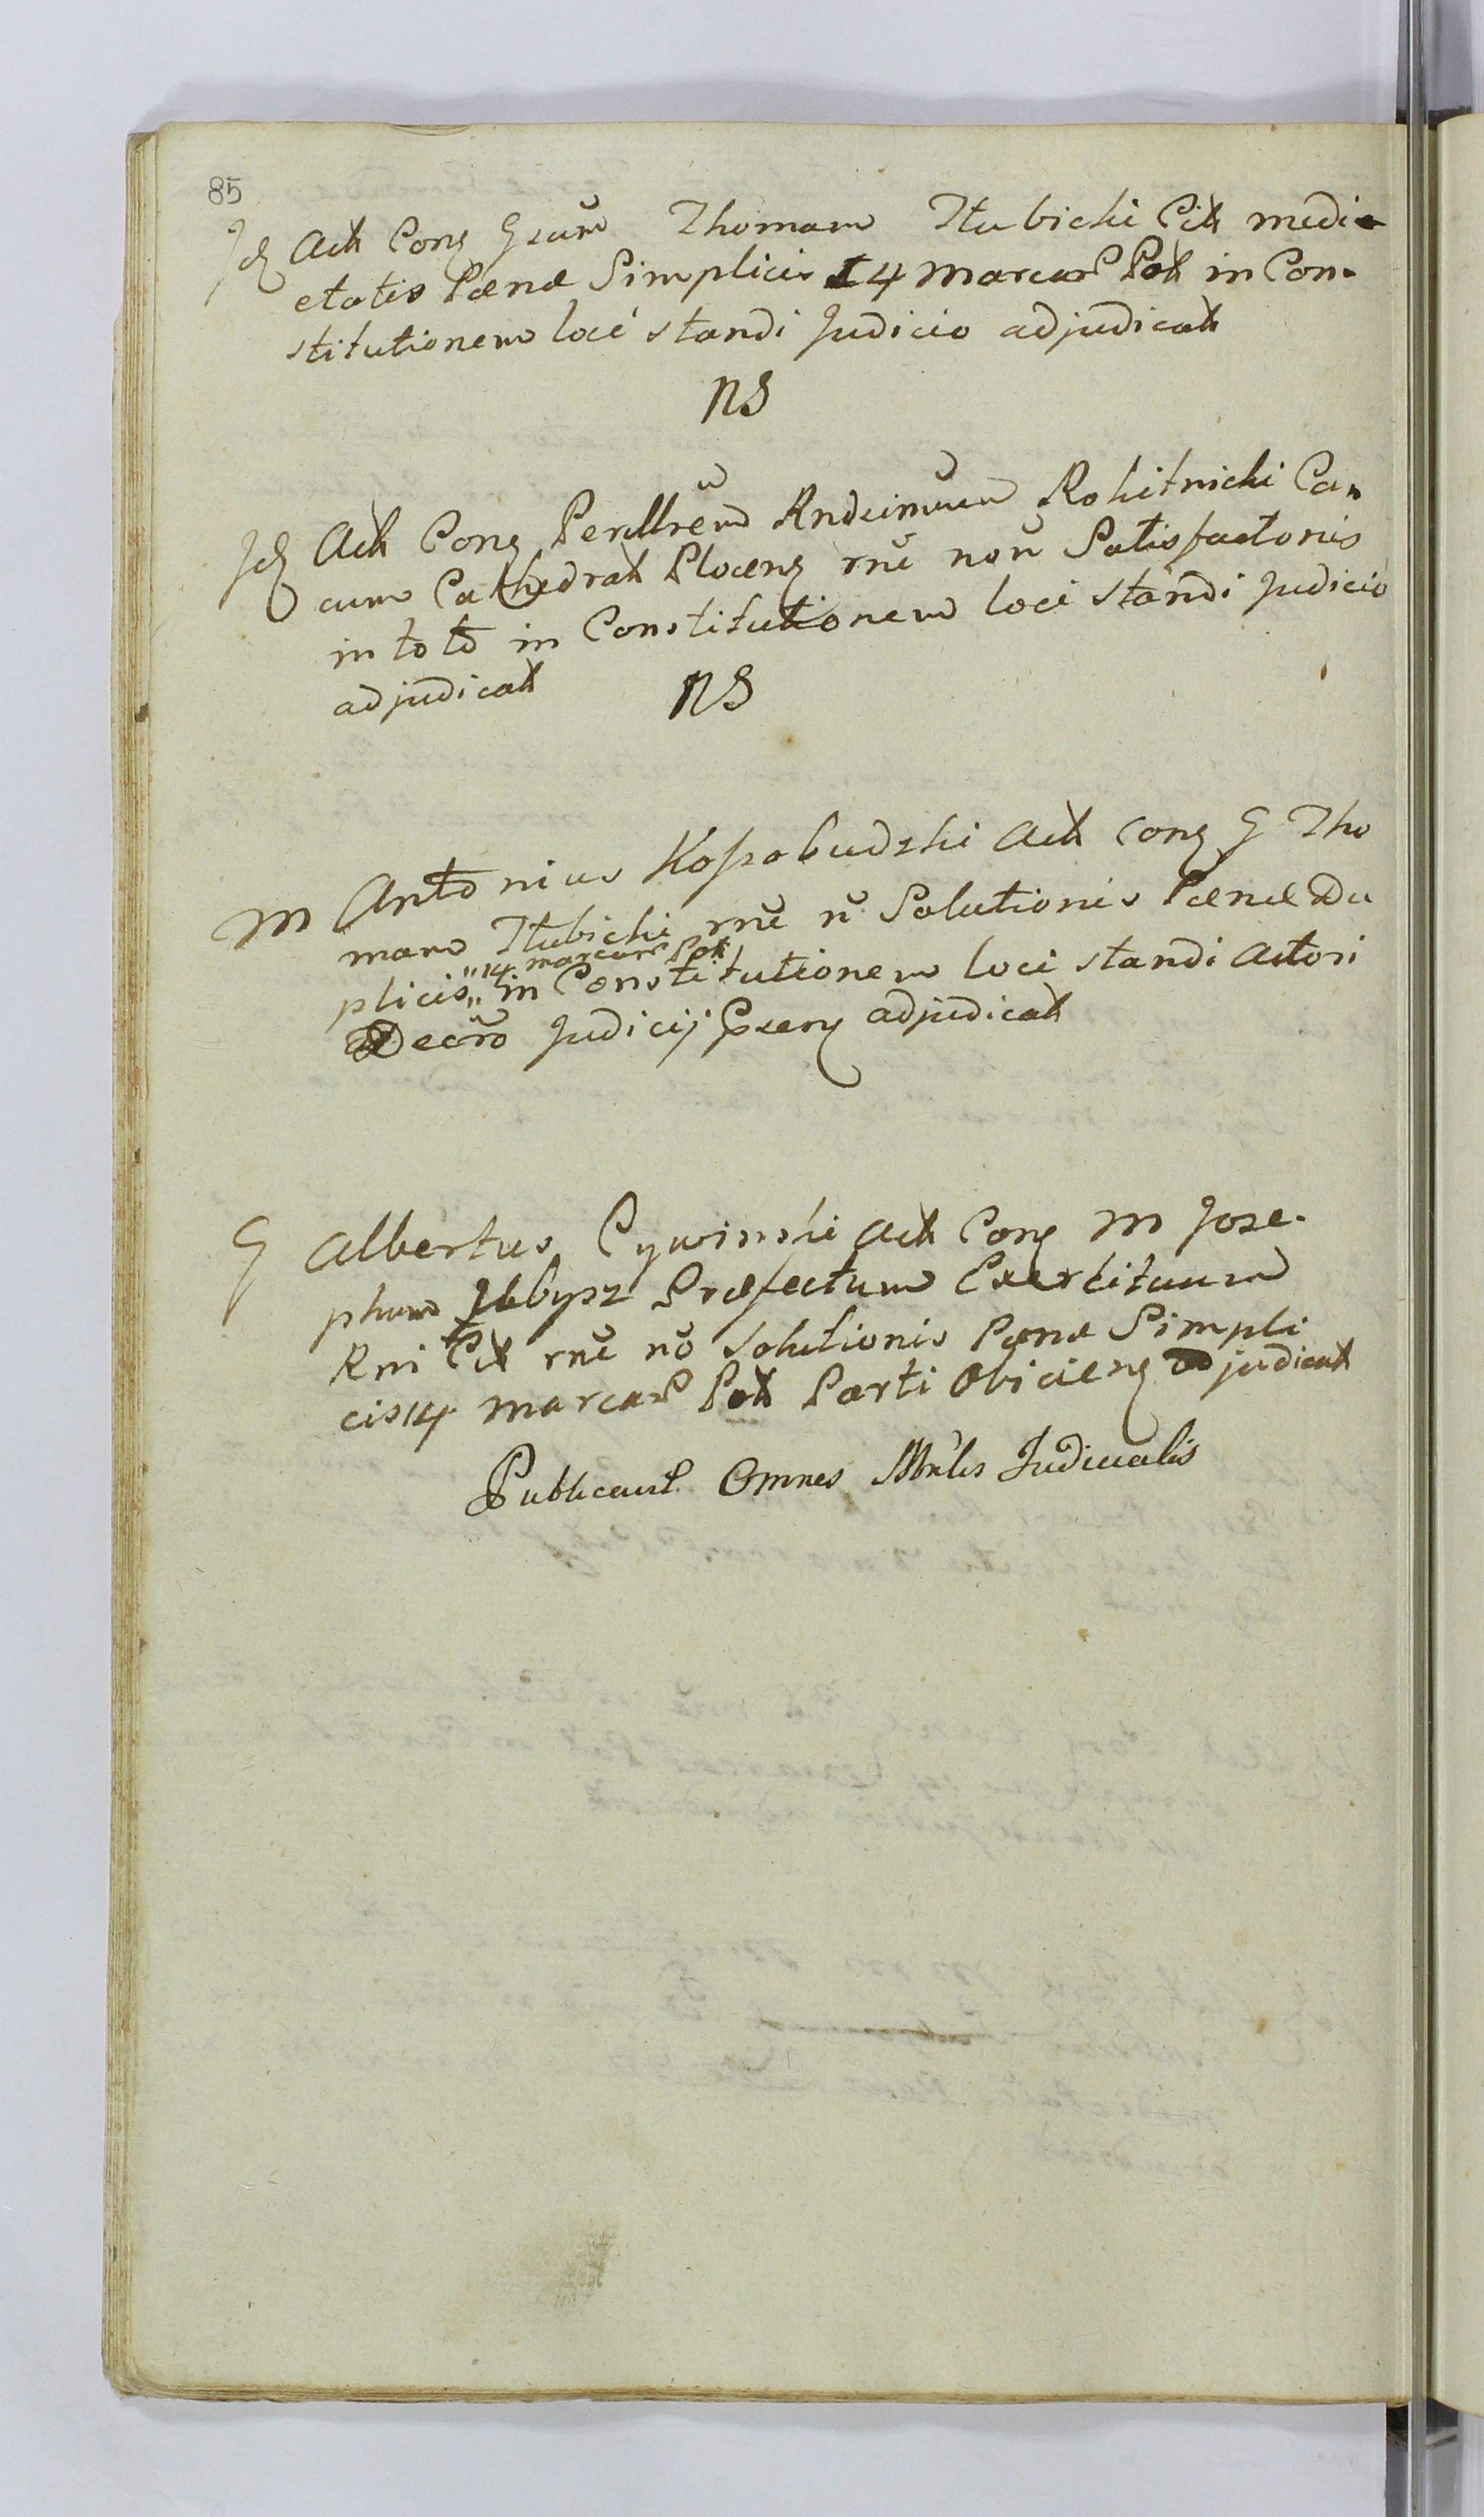 85
Jd Act Cong Gsum Thomam Itubicki Cit medi-
etatis Pænæ Simplicis 14 Marcar Pol in Con-
stitutionem loci standi Judicio adjudicat
NS
Jd Act Cong Perillrem Rndcimum Rokitnicki Ca-
cum Cathedral Plocens rne non Satisfactonis
in toto in Constitutionem loci standi Judicio
adjudicat NS
M Antonius Kossobudzki Act Cong G Tho
mam Itubicki rne n Solutionis Pænæ Du
plicis „14. marcar Pol
„ in Constitutionem loci standi Actori
Decro Judicij Psens adjudicat
G Albertus Cywinski Act Cong M Jose-
phum Præfectum Exercituum
Rni Cit rne no Solutionis Pænæ Simpli
cis 14 Marcar Pol Parti Obiciens adjudicat
Publicaut Omnes Mbrles Judicualis